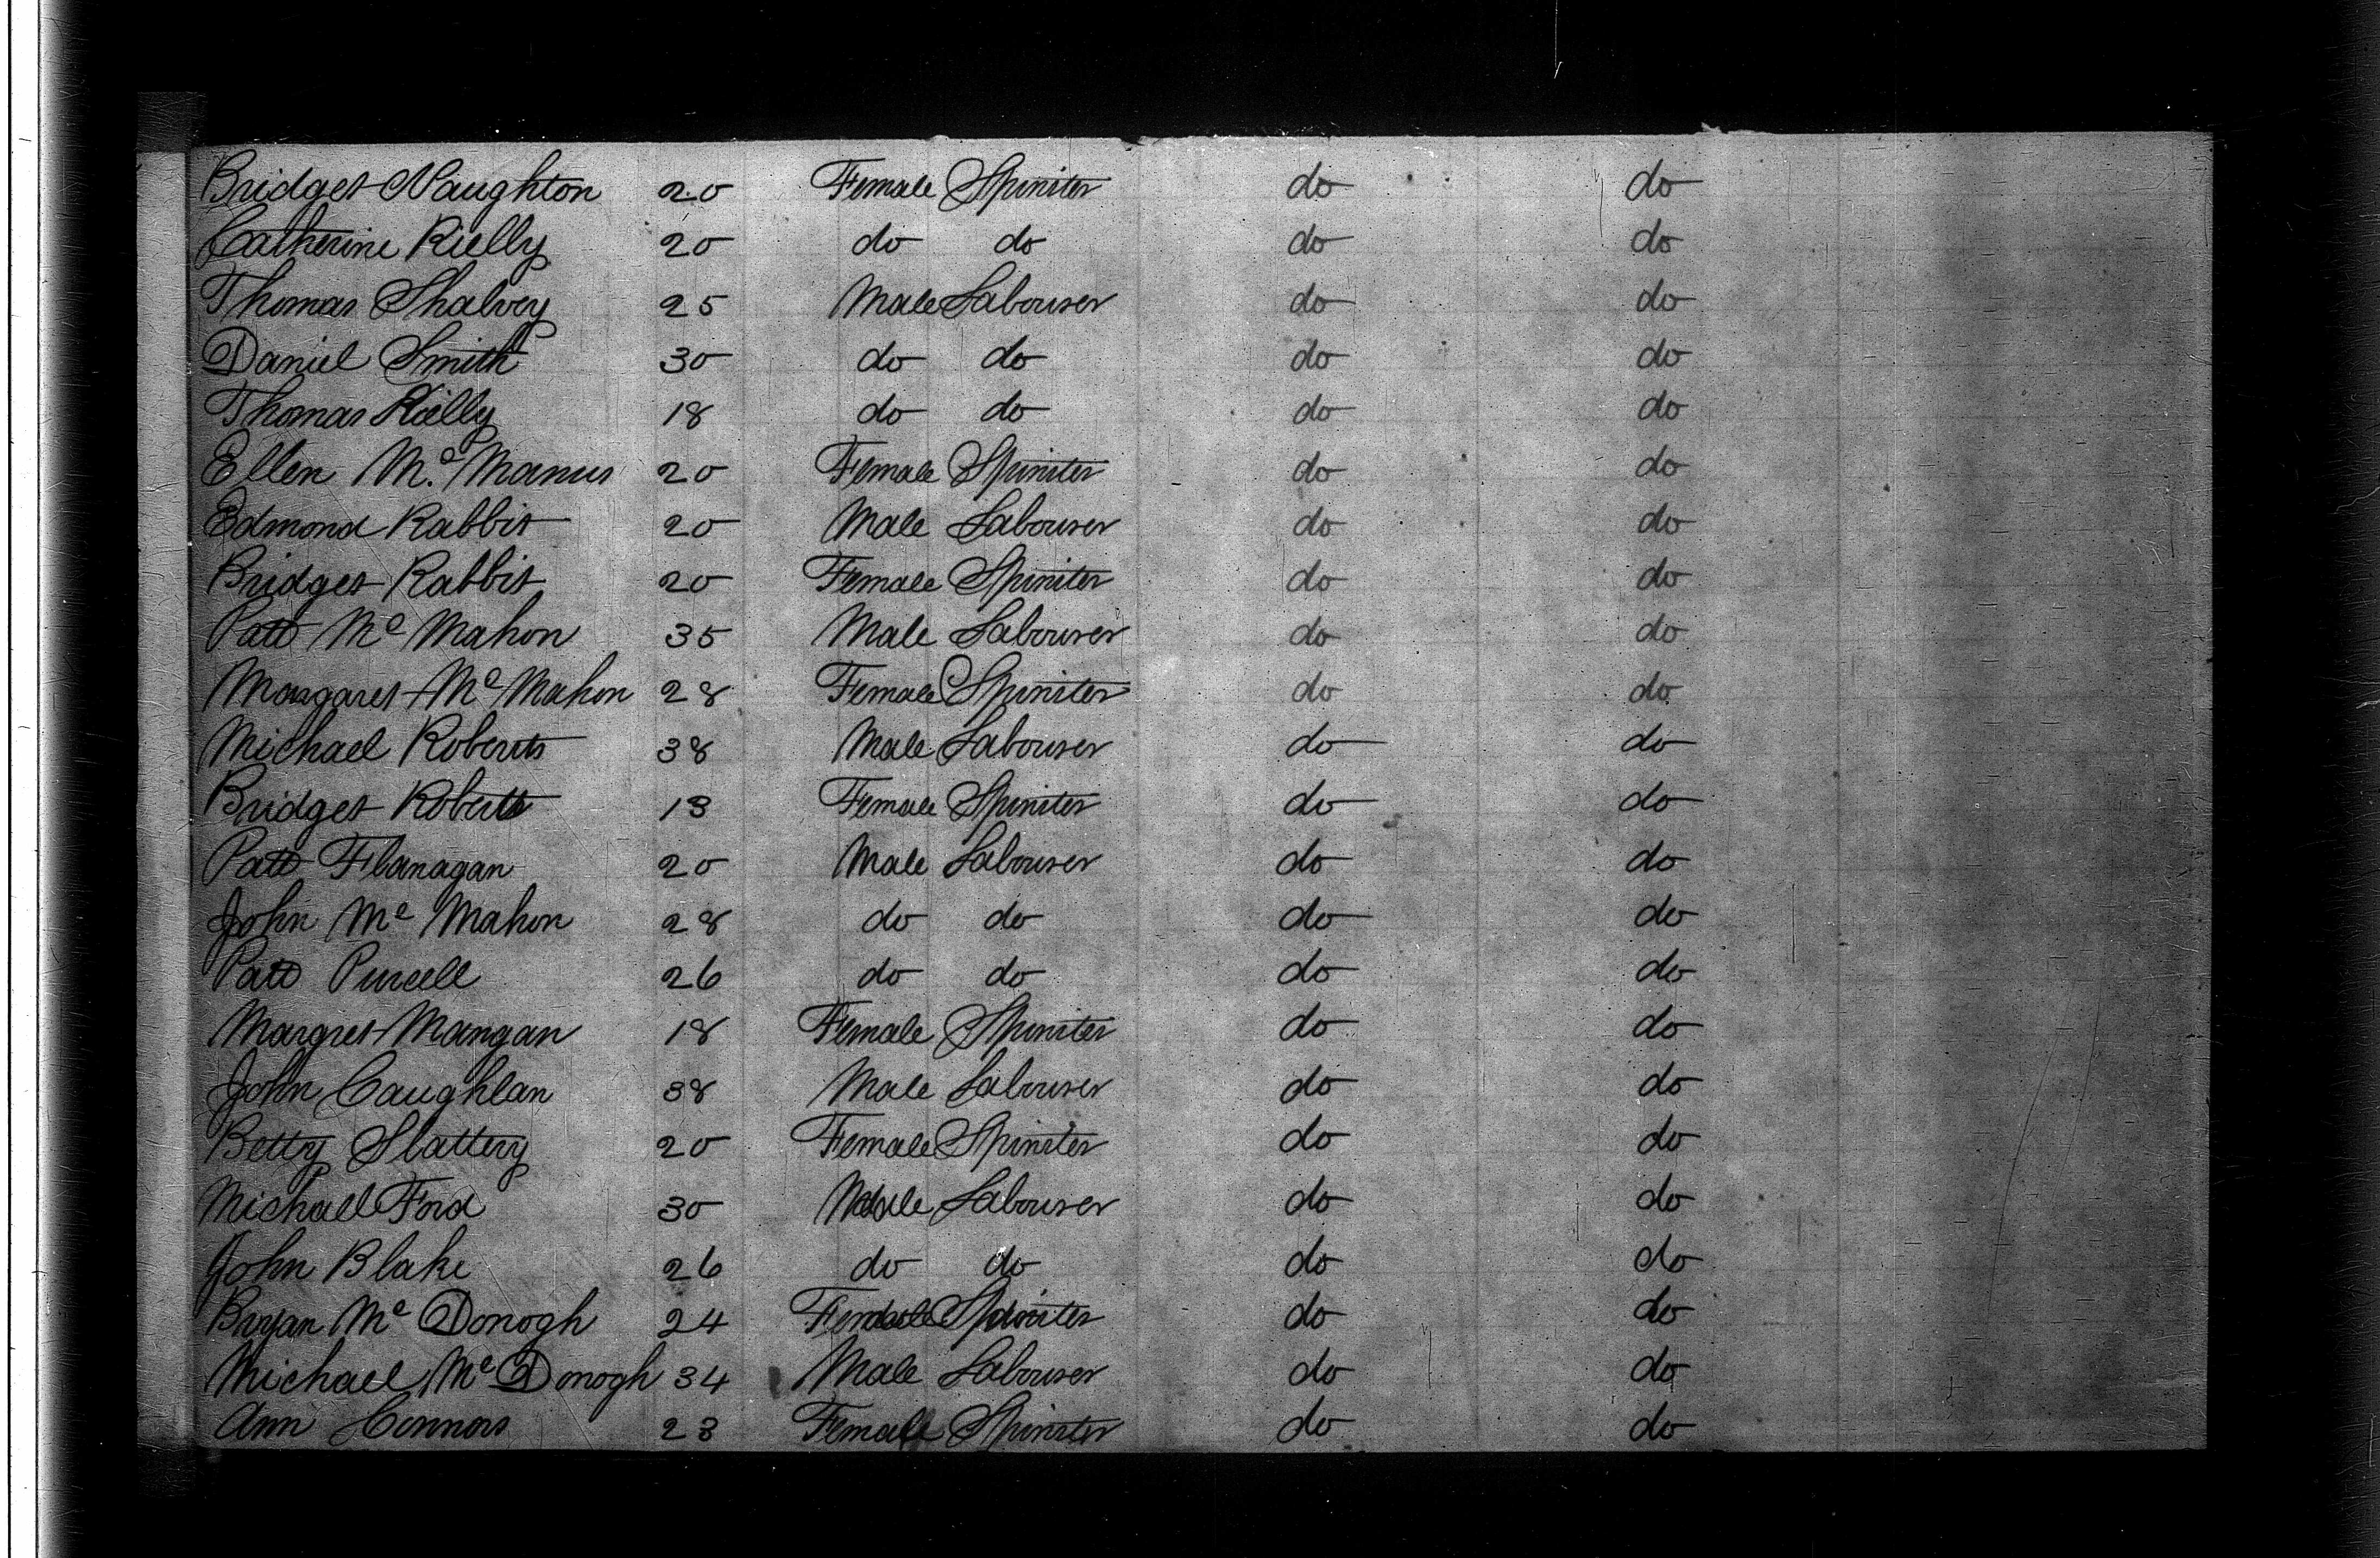 Bridget Naughton 20 Female Spinster do do
Catherine Rielly 20 do do do do
Thomas Shalvey 25 Male Labourer do do
Daniel Smith 30 do do do do
Thomas Rielly 18 do do do do
Ellen Mc. Manus 20 Female Spinster do do
Edmond Rabbit 20 Male Labourer do do
Bridget Rabbit 20 Female Spinster do do
Patt Mc Mahon 35 Male Labourer do do
Margaret Mc Mahon 28 Female Spinster do do
Michael Roberts 38 Male Labourer do do
Bridget Roberts 13 Female Spinster do do
Patt Flanagan 20 Male Labourer do do
John Mc Mahon 28 do do do do
Patt Purcell 26 do do do do
Margret Mangan 18 Female Spinster do do
John Caughlan 38 Male Labourer do do
Betty Slattery 20 Female Spinster do do
Michael Ford 30 Male Labourer do do
John Blake 26 do do do do
Bryan Mc Donogh 24 Female Spinster do do
Michael Mc Donogh 34 Male Labourer do do
Ann Connors 23 Female Spinster do do